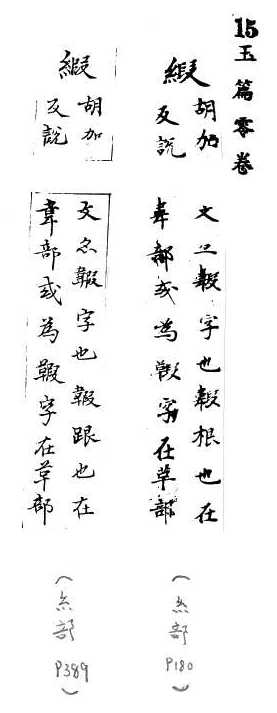 15玉篇零卷
胡加
反說
文亦字也根也在
韋部或為字在草部
(糸部 P180)
胡加
反說
文亦字也跟也在
韋部或為字在草部
(糸部 P389)